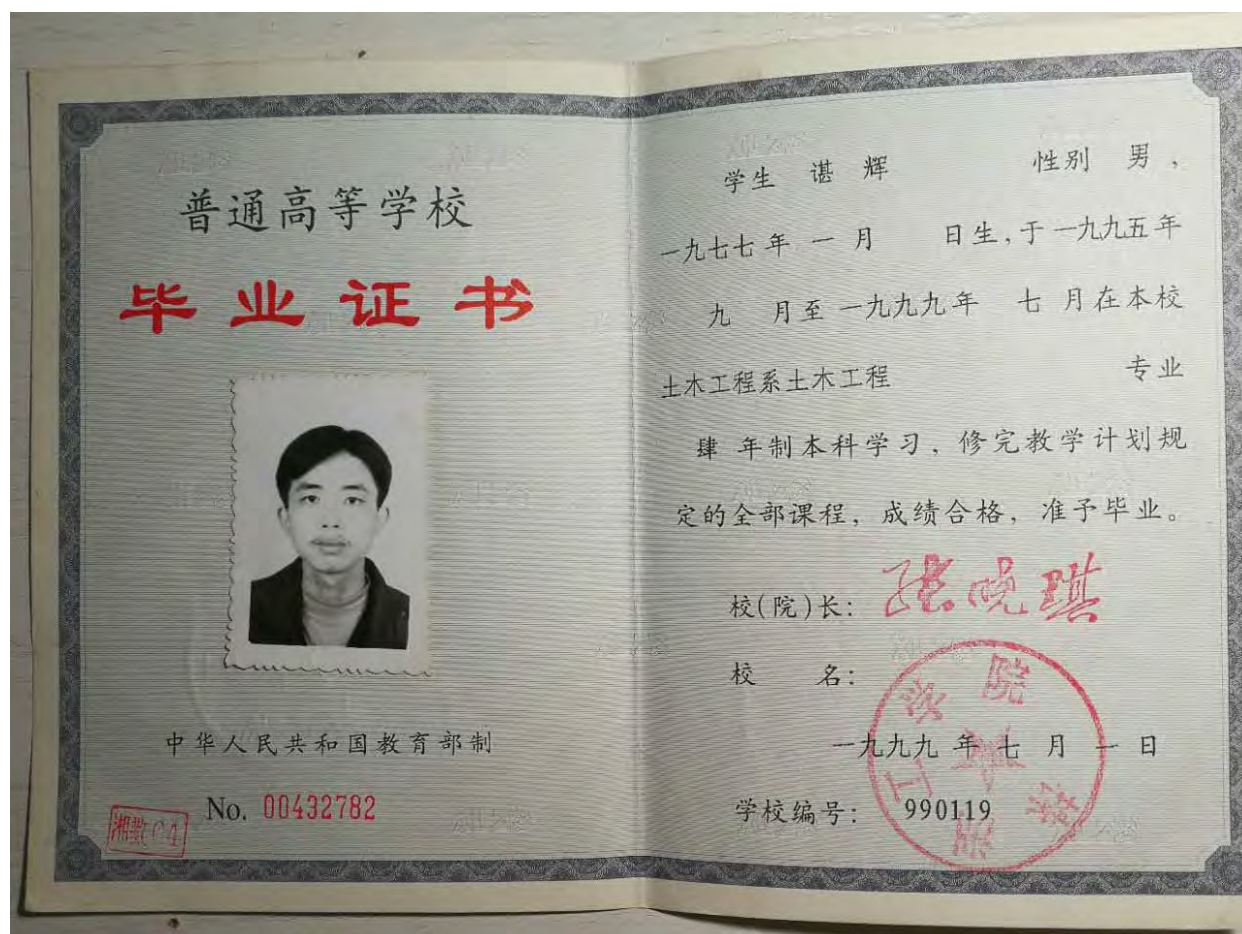 普通高等学校
毕业证书
中华人民共和国教育部制
No. 00432782
湘教04
学生 谌辉 性别 男,
一九七七年 一 月 日生,于一九九五年
九 月至一九九九年 七 月在本校
土木工程系土木工程 专业
肆 年制本科学习,修完教学计划规
定的全部课程,成绩合格,准予毕业。
校(院)长: 张晓琪
校 名:
一九九九 年 七 月 一 日
学校编号: 990119